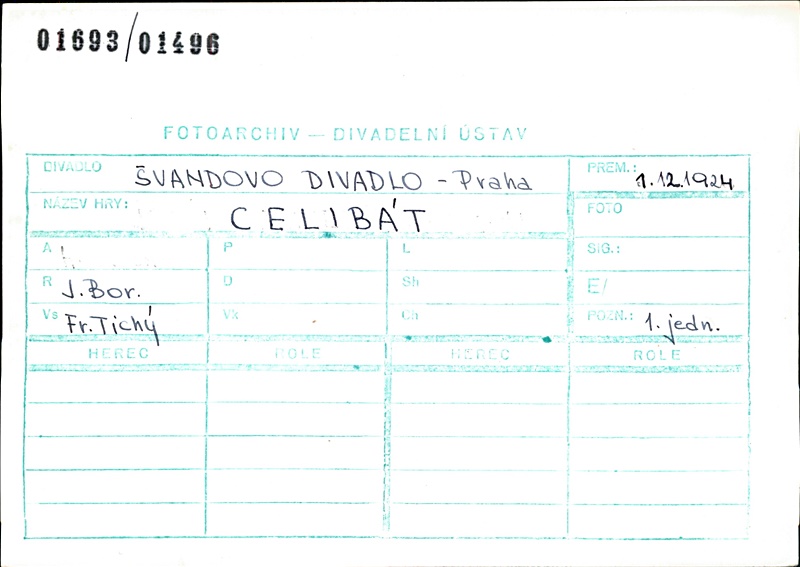 01693/01496
FOTOARCHIV — DIVADELNÍ ÚSTAV
DIVADLO ŠVANDOVO DIVADLO - Praha PREM.: 1.12.1924
NÁZEV HRY: CELIBÁT FOTO
A P L SIG.:
R J. Bor. D Sh E/
Vs Fr. Tichý Vk Ch POZN.: 1. jedn.
HEREC ROLE HEREC ROLE